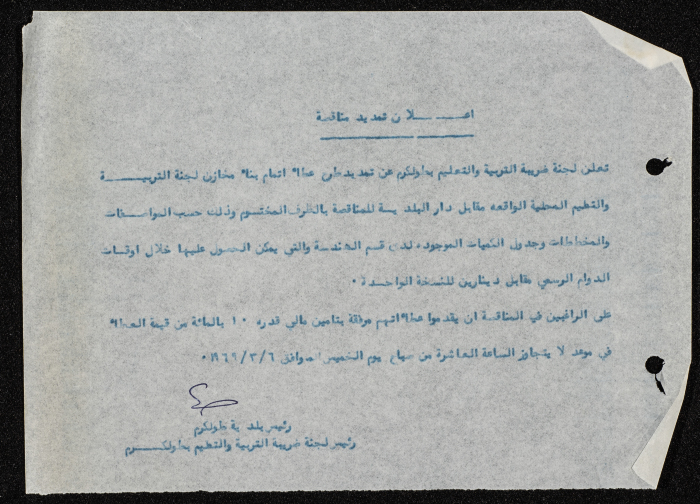 اعـــــلان تمديد مناقصة
تعلن لجنة ضريبة التربية والتعليم بطولكرم عن تمديد طرح عطاء اتمام بناء مخازن لجنة التربيـــــة
والتعليم المحلية الواقعه مقابل دار البلديسة للمناقصة بالظرف المختسوم وذلك حسب المواصفات
والمخططات وجدول الكميات الموجوده لدى قسم الهندسة والتي يمكن الحصول عليها خلال اوقات
الدوام الرسمي مقابل دينارين للنسخة الواحدة .
على الراغبين في المناقصة ان يقدموا عطاءاتهم مرفقة بتامين مالي قدره ١٠ بالمائة من قيمة العطاء
في موعد لا يتجاوز الساعة العاشرة من صباح يوم الخميس الموافق ١٩٦٩/٣/٦ .
رئيس بلدية طولكرم
رئيس لجنة ضريبة التربية والتعليم بطولكـــرم